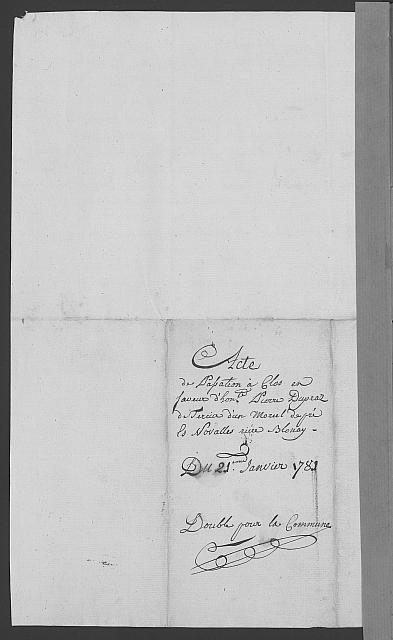 Acte
de Passation à Clos en
faveur d'hon.ble Pierre Dupraz
de Tercier d'un Morcel de pré
Es Novalles rière Blonay -
Du 21. Janvier 1781
Double pour la Commune